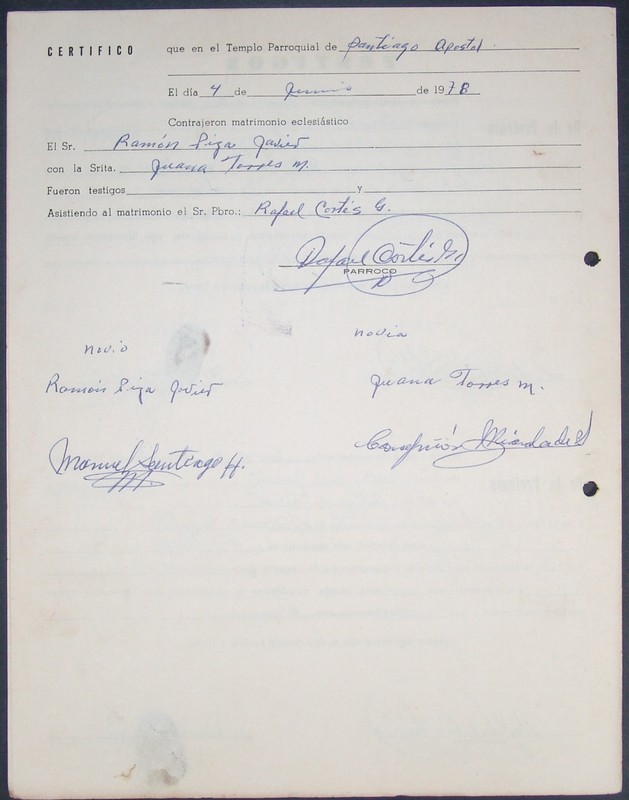 CERTIFICO que en el Templo Parroquial de Santiago Apostol.
El día 4 de Junio de 1978
Contrajeron matrimonio eclesiástico
El Sr. Ramón Piza Javier
con la Srita. Juana Torres M.
Fueron testigos y
Asistiendo al matrimonio el Sr. Pbro.: Rafael Cortés G.
Rafael Cortés G.
PARROCO
novio novia
Ramón Piza Javier Juana Torres M.
Manuel Santiago H. Concepción